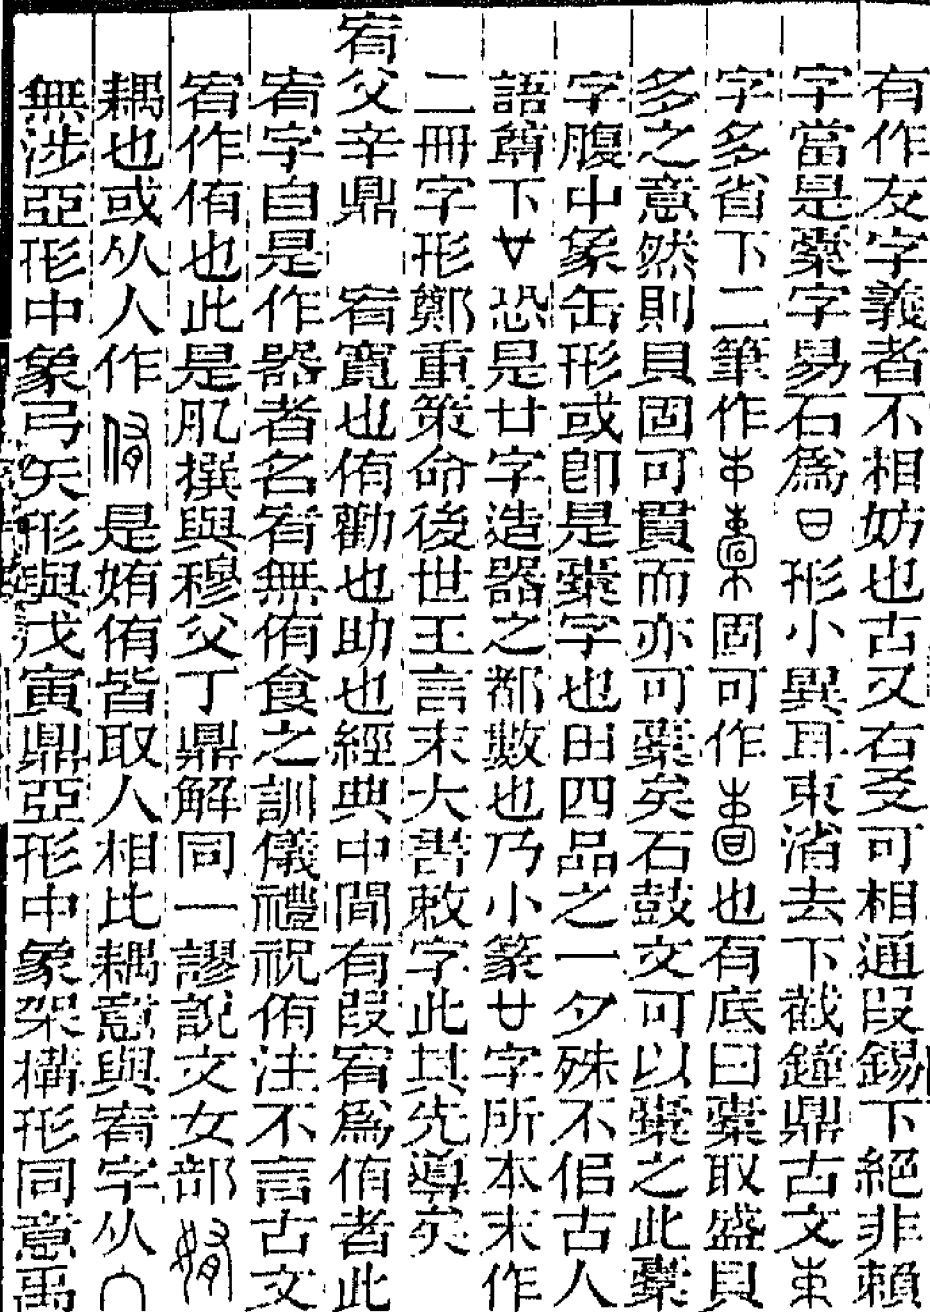 有作友字義者不相妨也古又右㕛可相通叚錫下絕非賴
字當是橐字易石爲形小異耳東渻去下截鐘鼎古文
字多省下二筆作固可作也有底曰橐取盛貝
多之意然則貝固可貫而亦可橐矣石鼓文可以橐之此橐
字腹中象缶形或卽是橐字也田四品之一夕殊不佀古人
語尊下恐是廿字造器之都數也乃小篆廿字所本末作
二冊字形鄭重策命後世王言末大書敕字此其先導矣
宥父辛鼎 宥寬也侑勸也助也經典中閒有叚宥爲侑者此
宥字自是作器者名宥無侑食之訓儀禮祝侑注不言古文
宥作侑也此是肊撰與穆父丁鼎解同一謬說文女部
耦也或从人作是姷侑皆取人相比耦意與宥字从宀
無涉亞形中象弓矢形與戊寅鼎亞形中象架構形同意禹